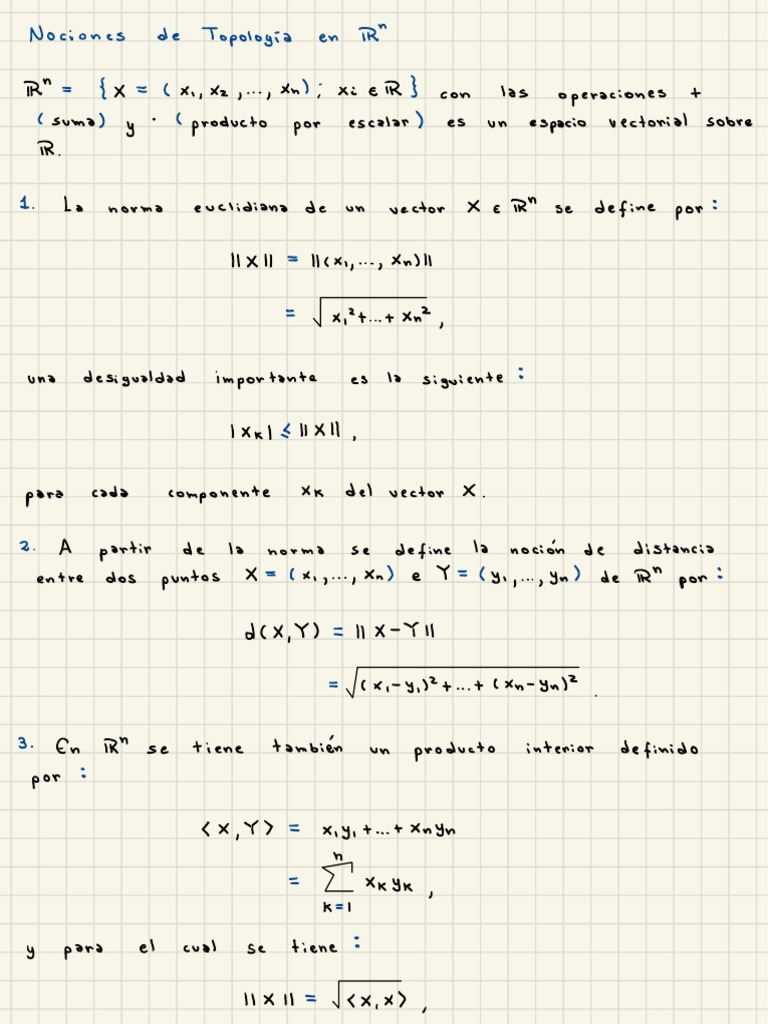 Nociones de Topología en ℝⁿ
ℝⁿ = { X = ( x₁, x₂, ..., xₙ) ; xᵢ ∈ ℝ } con las operaciones +
(suma) y · (producto por escalar) es un espacio vectorial sobre
ℝ.
1. La norma euclidiana de un vector X ∈ ℝⁿ se define por :
||X|| = ||(x₁, ..., xₙ)||
= √(x₁² + ... + xₙ²) ,
una desigualdad importante es la siguiente :
|xₖ| ≤ ||X|| ,
para cada componente xₖ del vector X.
2. A partir de la norma se define la noción de distancia
entre dos puntos X = (x₁, ..., xₙ) e Y = (y₁, ..., yₙ) de ℝⁿ por :
d(X,Y) = ||X-Y||
= √((x₁-y₁)² + ... + (xₙ-yₙ)²) .
3. En ℝⁿ se tiene también un producto interior definido
por :
⟨X,Y⟩ = x₁y₁ + ... + xₙyₙ
= ∑ₖ₌₁ⁿ xₖyₖ ,
y para el cual se tiene :
||X|| = √⟨X,X⟩ ,